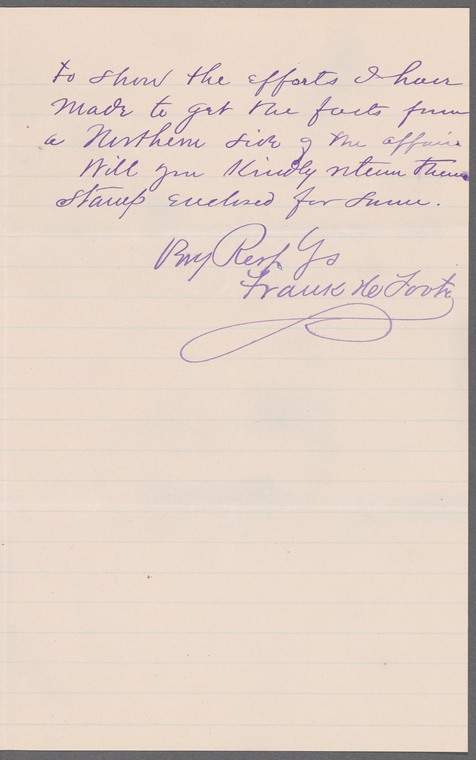 to show the efforts I have
made to get the facts from
a Northern side of the affair
Will you Kindly return them
Stamp enclosed for same.
Resp Ys
Frank Foote